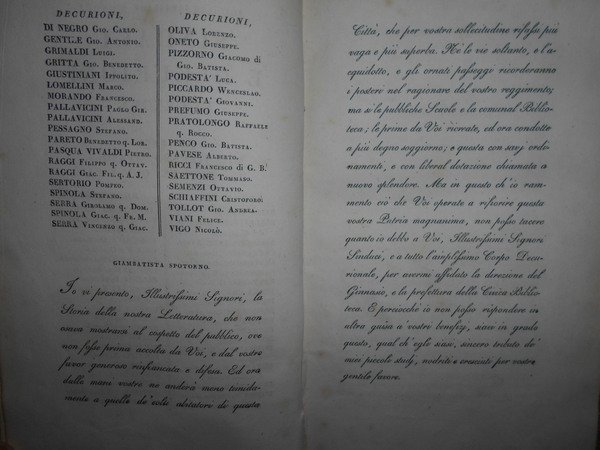 DECURIONI,
DI NEGRO Gio. Carlo.
GENTILE Gio. Antonio.
GRIMALDI Luigi.
GRITTA Gio. Benedetto.
GIUSTINIANI Ippolito.
LOMELLINI Marco.
MORANDO Francesco.
PALLAVICINI Paolo Gir.
PALLAVICINI Alessand.
PESSAGNO Stefano.
PARETO Benedetto q. Lor.
PASQUA VIVALDI Pietro.
RAGGI Filippo q. Ottav.
RAGGI Giac. Fil. q. A. J.
SERTORIO Pompeo.
SPINOLA Stefano.
SERRA Girolamo q. Dom.
SPINOLA Giac. q. Fr. M.
SERRA Vincenzo q. Giac.
DECURIONI,
OLIVA Lorenzo.
ONETO Giuseppe.
PIZZORNO Giacomo di
Gio. Batista.
PODESTA' Luca.
PICCARDO Wenceslao.
PODESTA' Giovanni.
PREFUMO Giuseppe.
PRATOLONGO Raffaele
q. Rocco.
PENCO Gio. Batista.
PAVESE Alberto.
RICCI Francesco di G. B.
SAETTONE Tommaso.
SEMENZI Ottavio.
SCHIAFFINI Cristoforo.
TOLLOT Gio. Andrea.
VIANI Felice.
VIGO Nicolò.
GIAMBATISTA SPOTORNO.
Io vi presento, Illustrissimi Signori, la
Storia della nostra Letteratura, che non
osava mostrarsi al cospetto del pubblico, ove
non fosse prima accolta da Voi, e dal vostro
favor generoso rafiancata e difesa. Ed ora
dalle mani vostre ne anderà meno timida-
mente a quelle de' colti abitatori di questa
Città, che per vostra sollecitudine rifassi più
vaga e più superba. Nè le vie soltanto, e l'a-
quidotto, e gli ornati passeggi ricorderanno
i posteri nel ragionare del vostro reggimento;
ma sì le pubbliche Scuole e la comunal Biblio-
teca; le prime da Voi ricreate, ed ora condotte
a più degno soggiorno; e questa con savj ordi-
namenti, e con liberal dotazione chiamata a
nuovo splendore. Ma in questo ch' io ram-
mento ciò che Voi operate a rifiorire questa
vostra Patria magnanima, non posso tacere
quanto io debbo a Voi, Illustrissimi Signori
Sindaci, e a tutto l'amplissimo Corpo Decu-
rionale, per avermi affidato la direzion del
Ginnasio, e la prefettura della Civica Biblio-
teca. E perciocche io non posso rispondere in
altra guisa a vostri benefizj, siavi in grado
questo, qual ch' egli siasi, sincero tributo de'
miei piccoli studj, nodriti e crescenti per vostro
gentile favore.